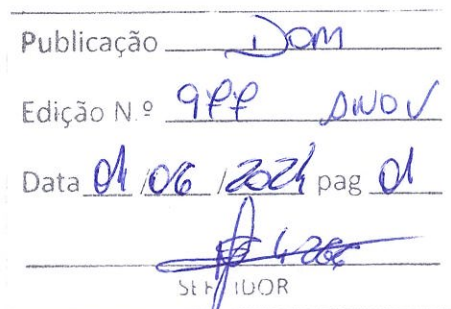 Publicação DOM
Edição N.º ANO V
Data 06 / 2024 pag 01
SERVIDOR